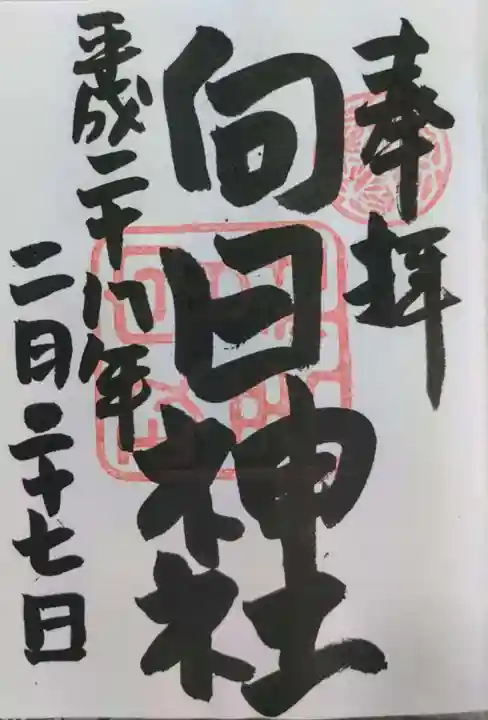 奉拝
向日神社
平成二十八年
二月二十七日